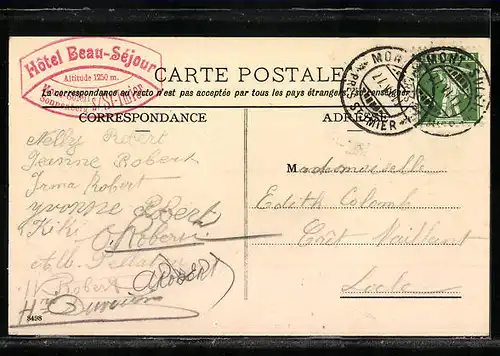 Hôtel Beau-Séjour
Altitude 1250 m.
Sonnenberg s/St-Imier
CARTE POSTALE
La correspondance au recto n'est pas acceptée par tous les pays étrangers.
CORRESPONDANCE
ADRESSE
MONT
ST-IMIER
MONT-SOLEIL
Nelly Robert
Jeanne Robert
Irma Robert
Yvonne Robert
Kiki
Robert
A Robert
Robert
Mademoiselle
Edith Colomb
Crêt Vaillant
Locle
8498